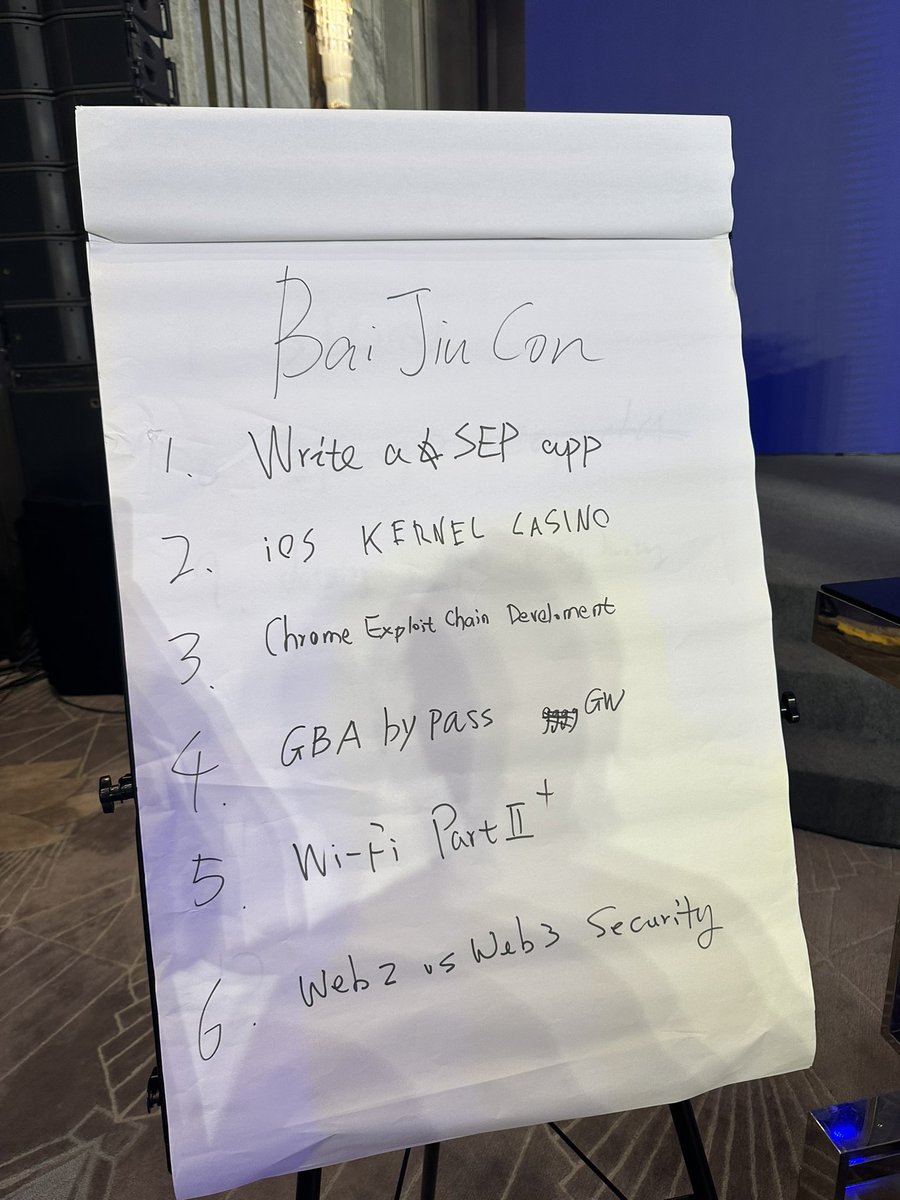 Bai Jiu Con
1. Write a SEP app
2. iOS KERNEL CASINO
3. Chrome Exploit Chain Develoment
4. GBA bypass GW
5. Wi-Fi Part II +
6. Web2 vs Web3 Security